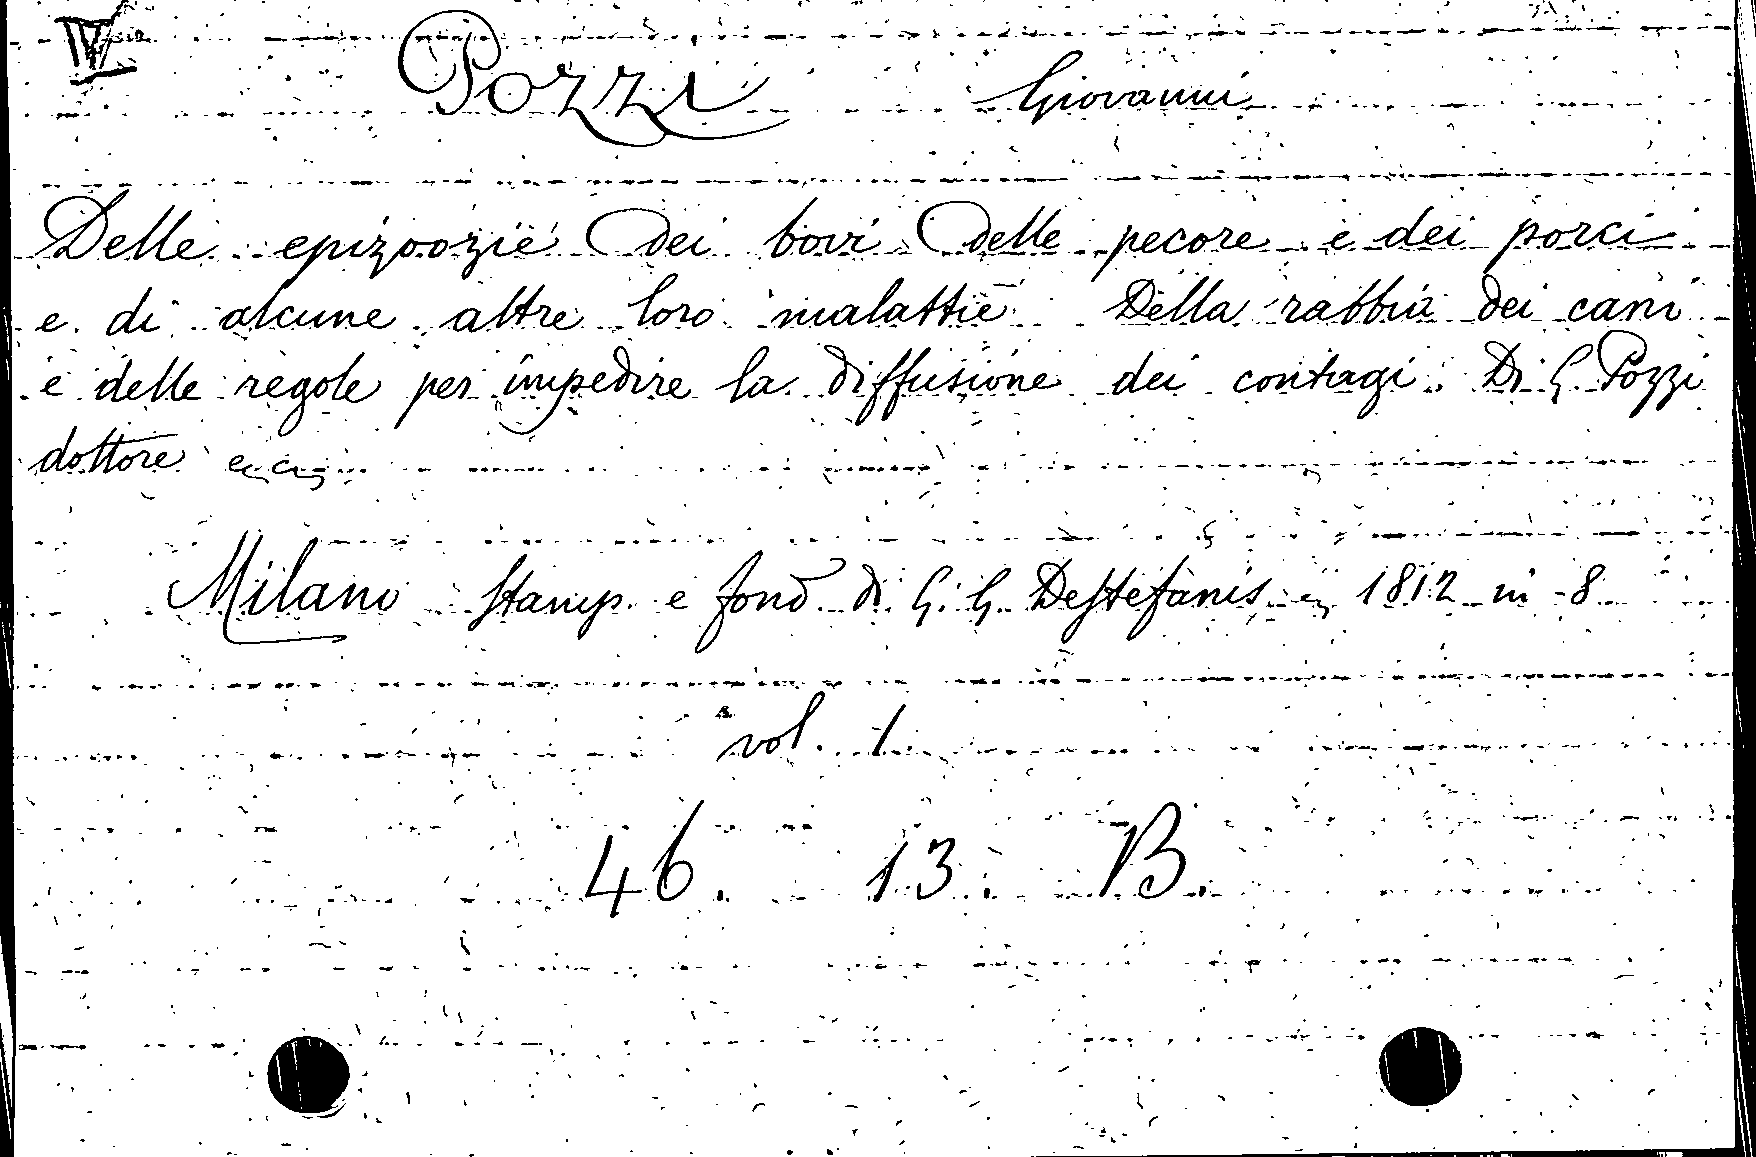 IV
Pozzi Giovanni
Delle epizoozie dei bovi delle pecore e dei porci
e di alcune altre loro malattie Della rabbia dei cani
e delle regole per impedire la diffusione dei contagi. Di G. Pozzi
dottore ecc
Milano Stamp. e fond di G. G. Destefanis 1812 in 8
vol. 1
46. 13. B.